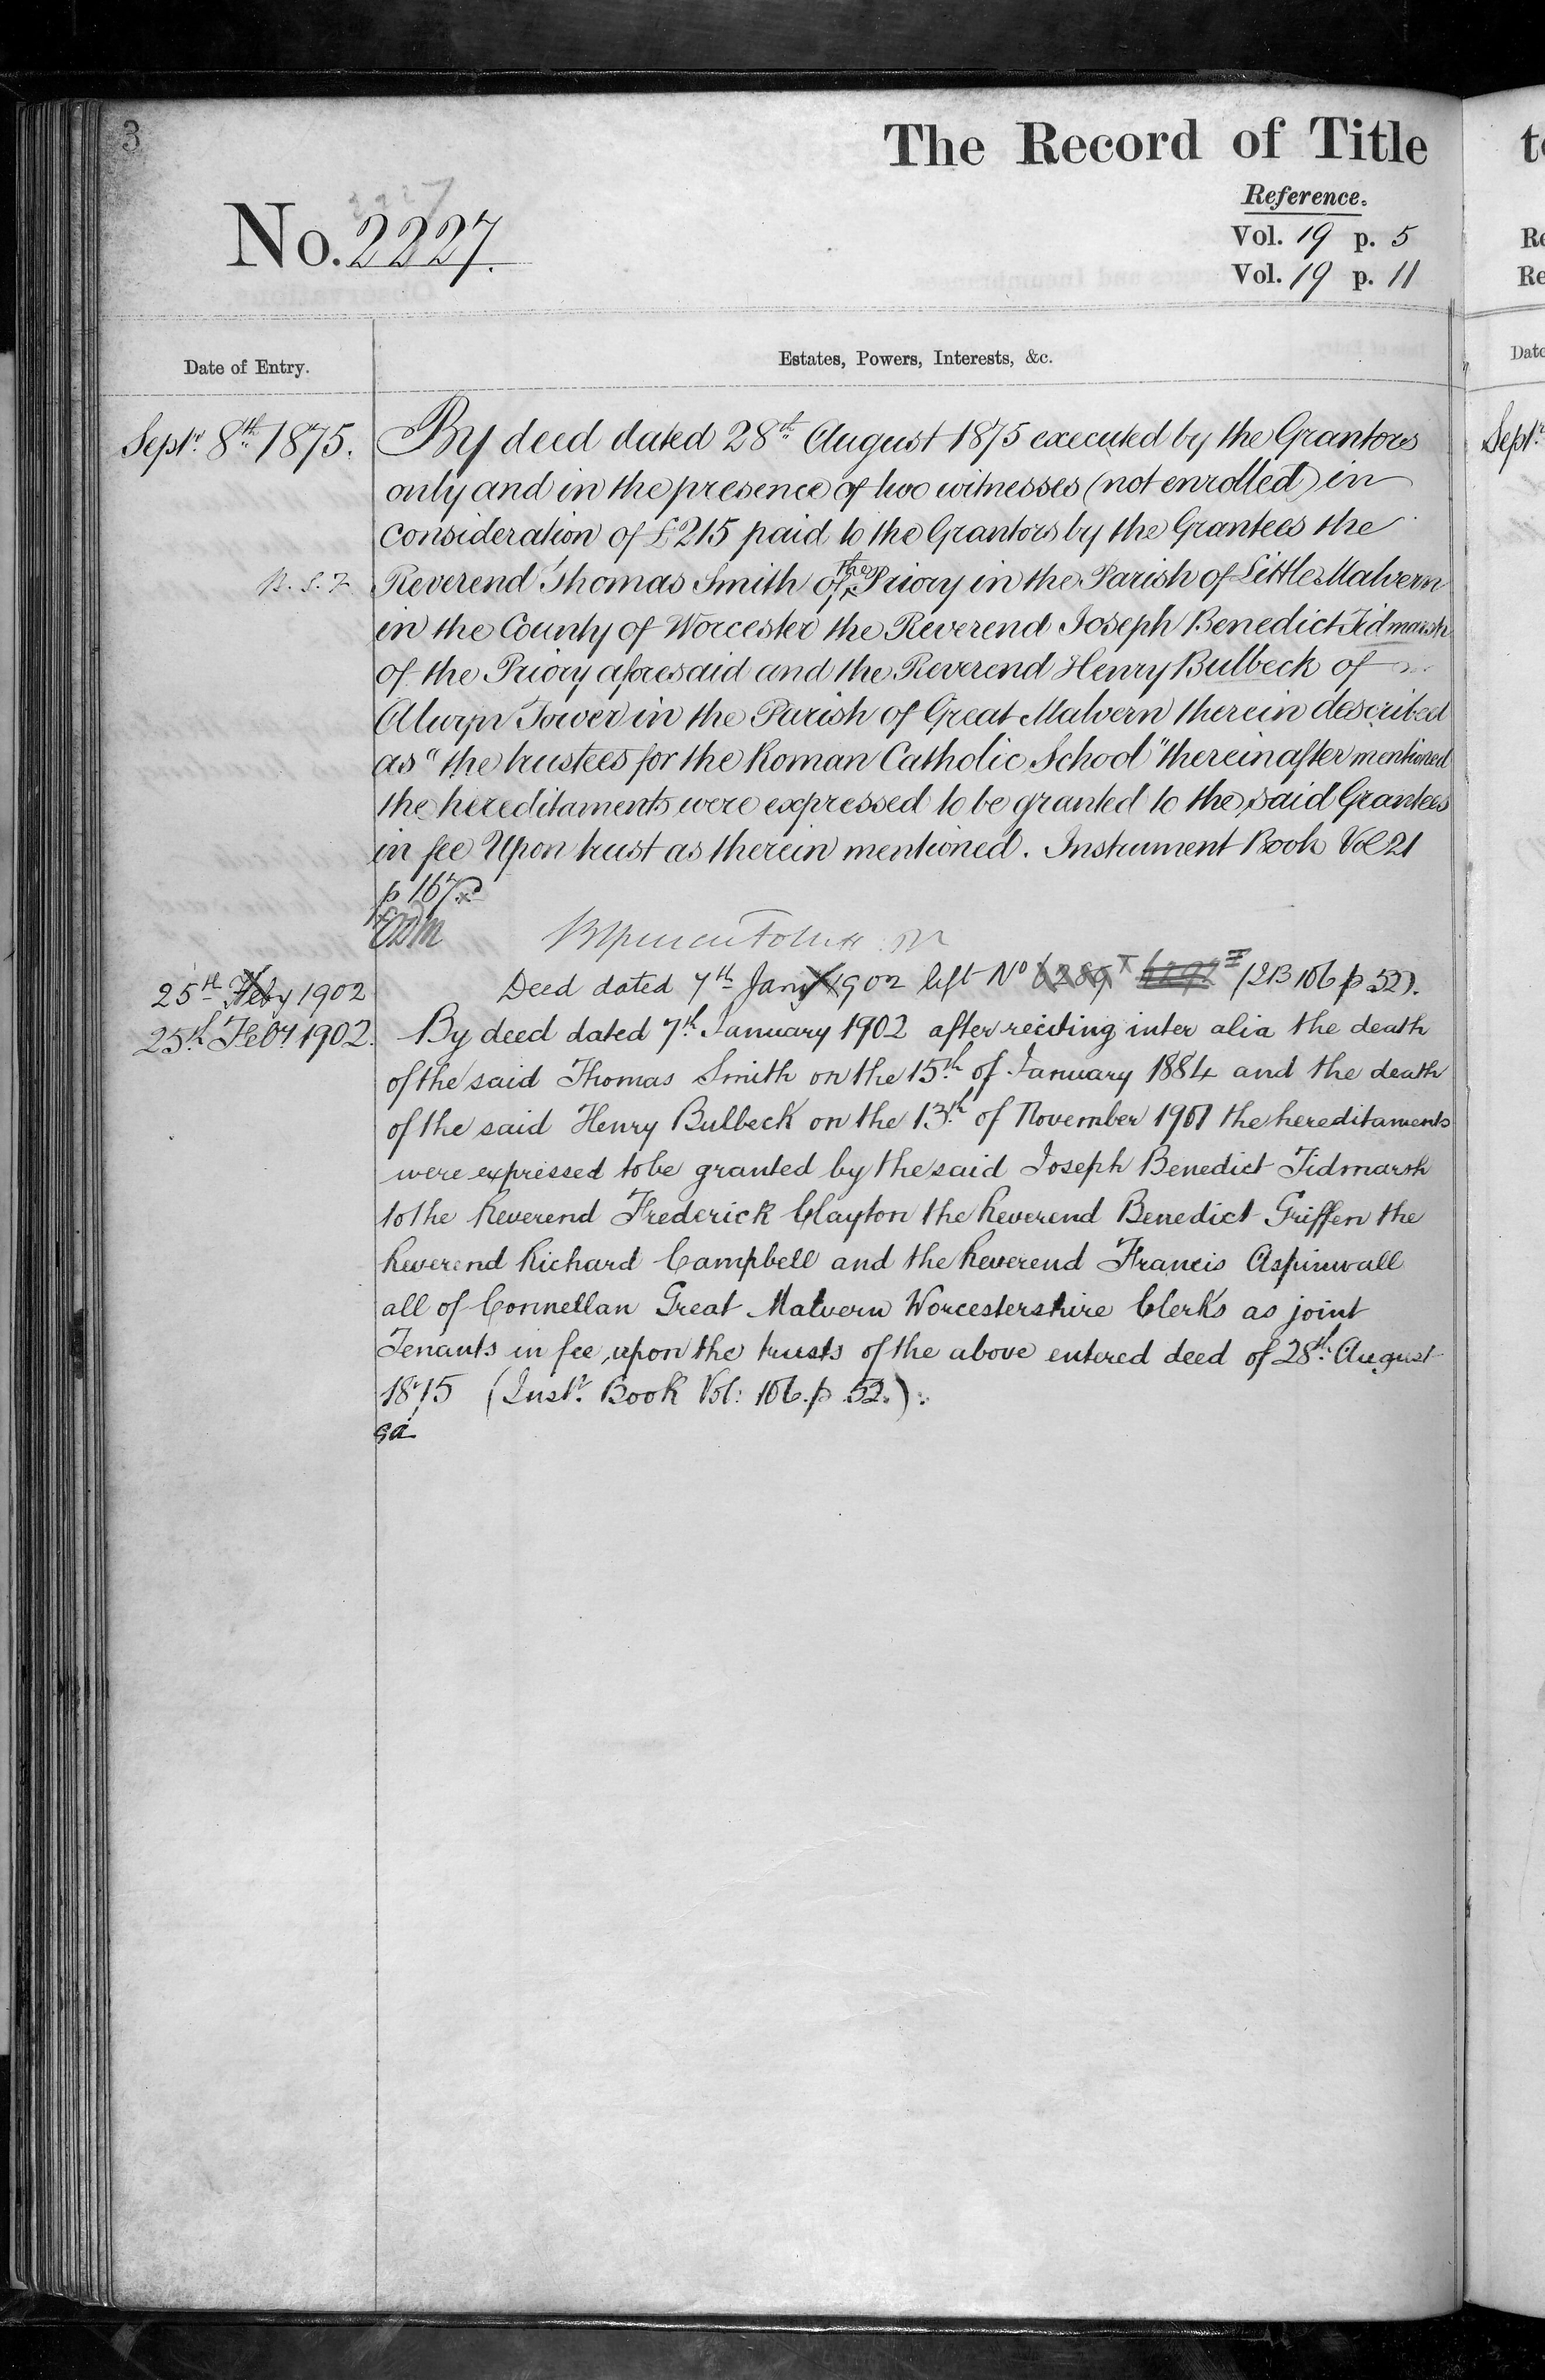 3
The Record of Title
Reference.
No. 2227.
2227
Vol. 19 p. 5
Vol. 19 p. 11
Date of Entry.
Estates, Powers, Interests, &c.
Septr. 8th 1875.
By deed dated 28th August 1875 executed by the Grantors
only and in the presence of two witnesses (not enrolled) in
consideration of £215 paid to the Grantors by the Grantees the
Reverend Thomas Smith of the Priory in the Parish of Little Malvern
in the County of Worcester the Reverend Joseph Benedict Tidmarsh
of the Priory aforesaid and the Reverend Henry Bulbeck of
Alwyn Tower in the Parish of Great Malvern therein described
as "the trustees for the Roman Catholic School" thereinafter mentioned
the hereditaments were expressed to be granted to the said Grantees
in fee Upon trust as therein mentioned. Instrument Book Vol 21
p 167
25th Feby 1902
Deed dated 7th Jany 1902 left No 6289 (IB 106 p 52).
25th Feby 1902.
By deed dated 7th January 1902 after reciting inter alia the death
of the said Thomas Smith on the 15th of January 1884 and the death
of the said Henry Bulbeck on the 13th of November 1901 the hereditaments
were expressed to be granted by the said Joseph Benedict Tidmarsh
to the Reverend Frederick Clayton the Reverend Benedict Griffen the
Reverend Richard Campbell and the Reverend Francis Aspinwall
all of Connellan Great Malvern Worcestershire Clerks as joint
Tenants in fee, upon the trusts of the above entered deed of 28th August
1875 (Instt. Book Vol: 106. p 52.).
t
Re
Re
Date
Septr.